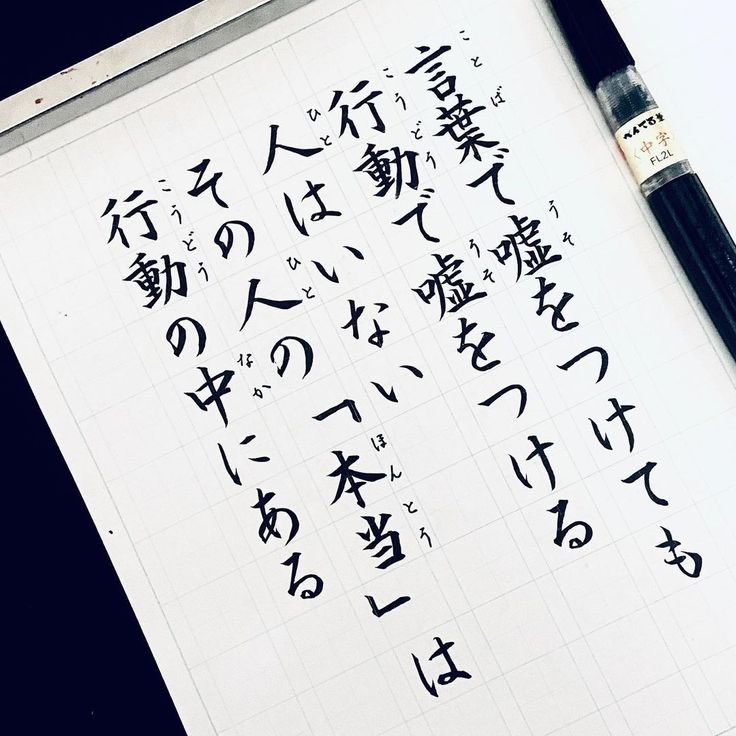 言葉で嘘をつけても
行動で嘘をつける
人はいない「本当」は
その人の
行動の中にある
ことば
うそ
こうどう
うそ
ひと
ほんとう
ひと
こうどう
なか
ぺんてる筆
〈中字〉
FL2L